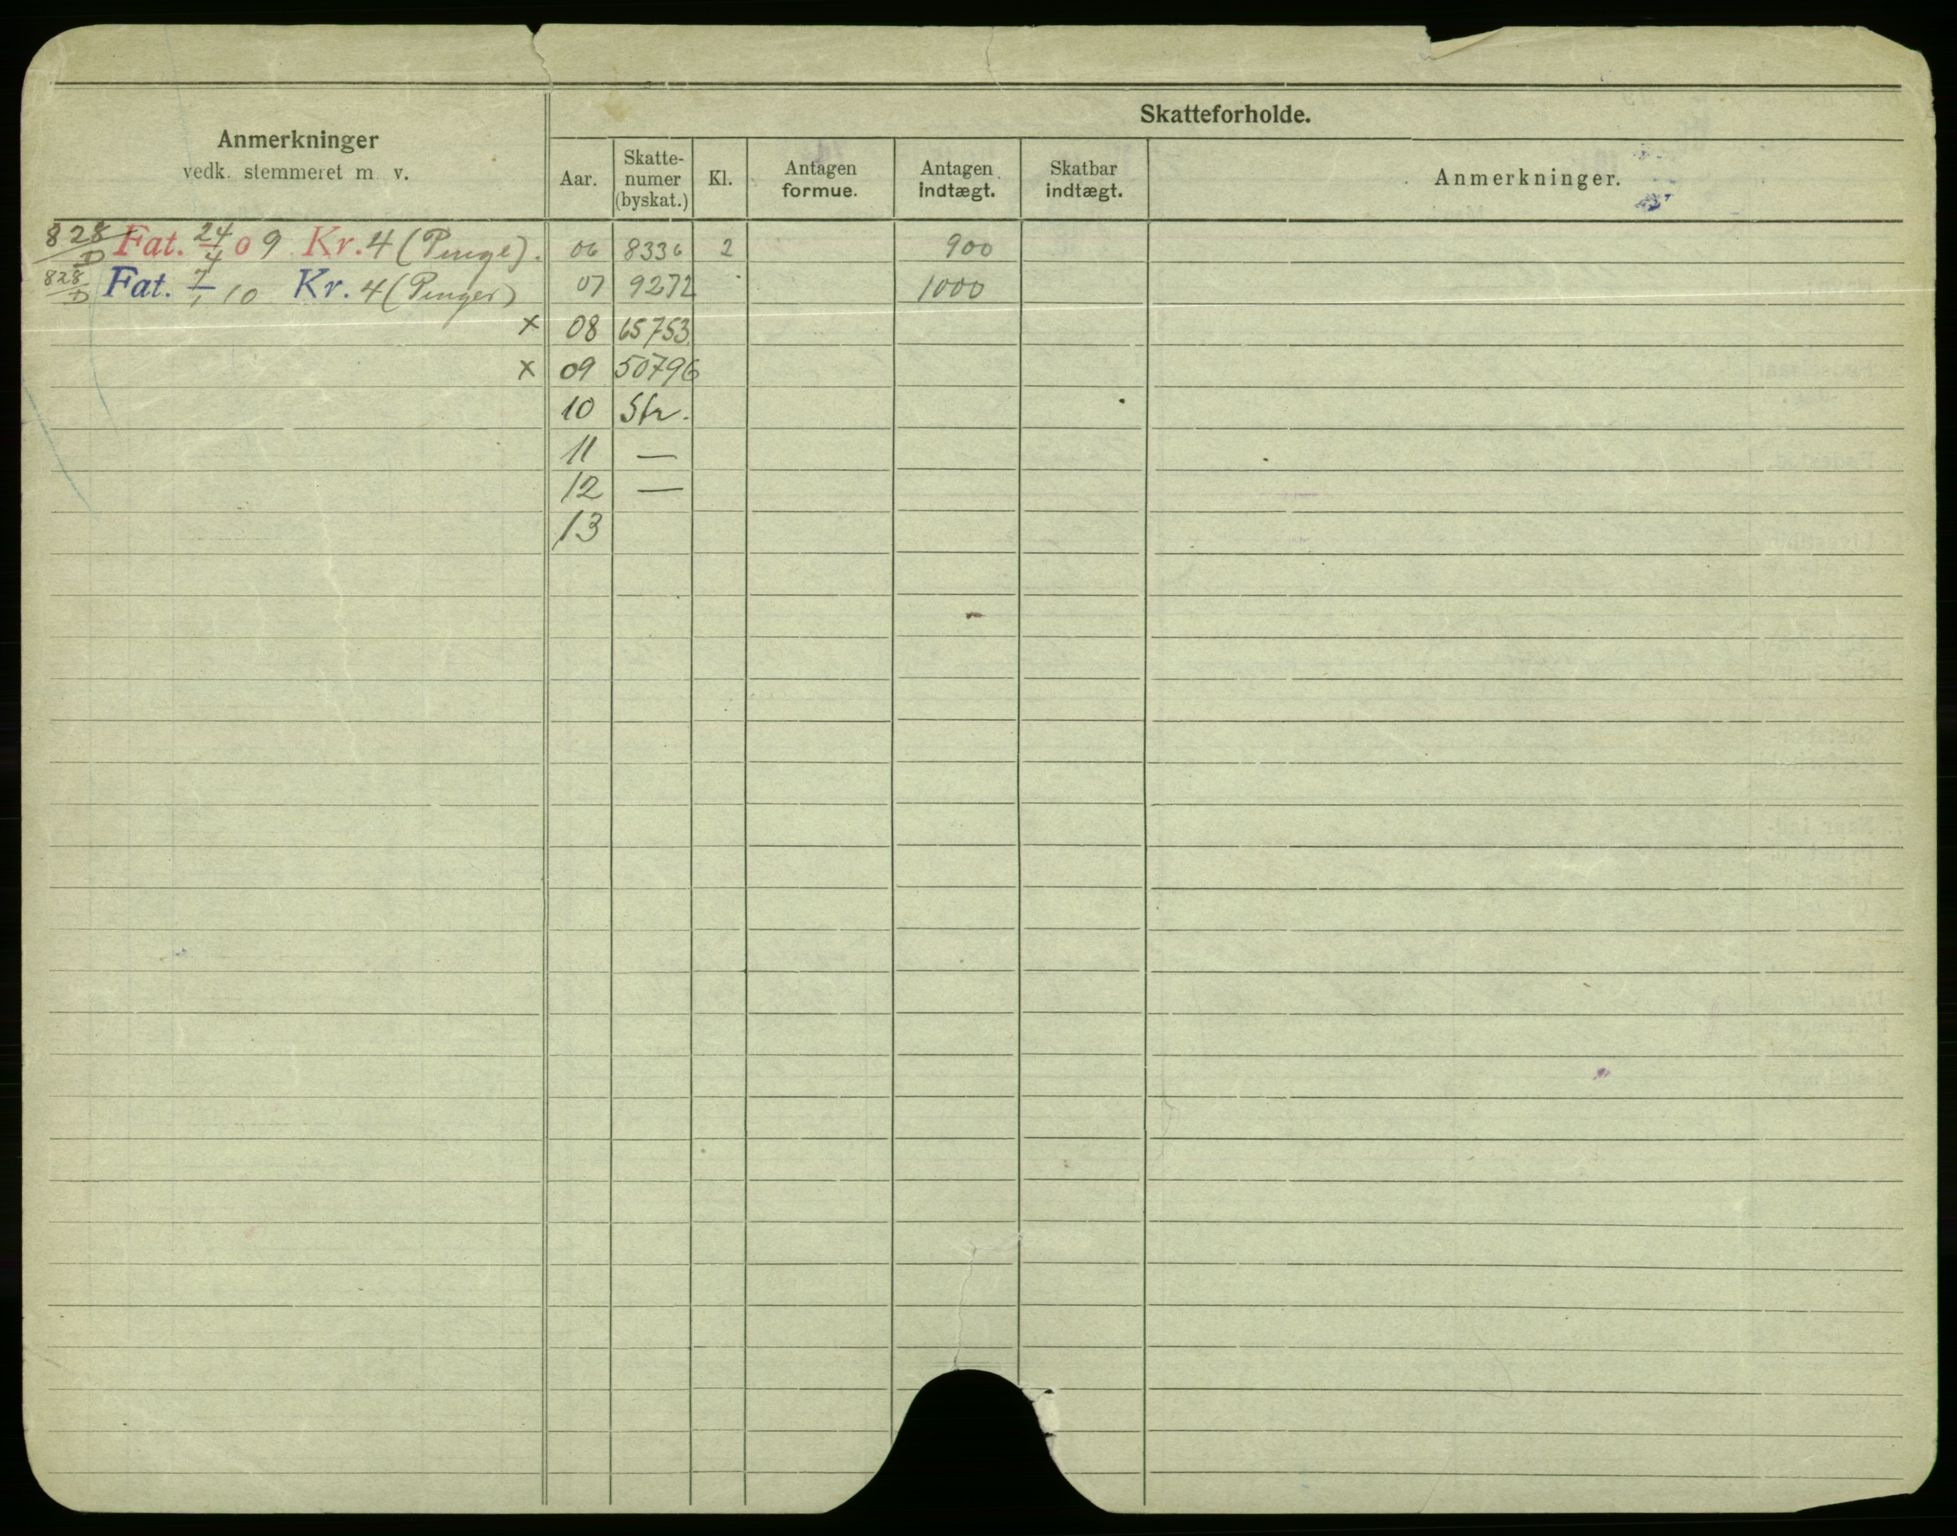 Anmerkninger
vedk. stemmeret m v.
Skatteforholde.
Aar.
Skatte-
numer
(byskat.)
Kl.
Antagen
formue.
Antagen
indtægt.
Skatbar
indtægt.
Anmerkninger.
828/D Fat. 24/4 09 Kr. 4 (Penge). 06 8336 2 900
828/D Fat. 7/1 10 Kr. 4 (Penger) 07 9272 1000
x 08 65753
x 09 50796
10 Str.
11 —
12 —
13